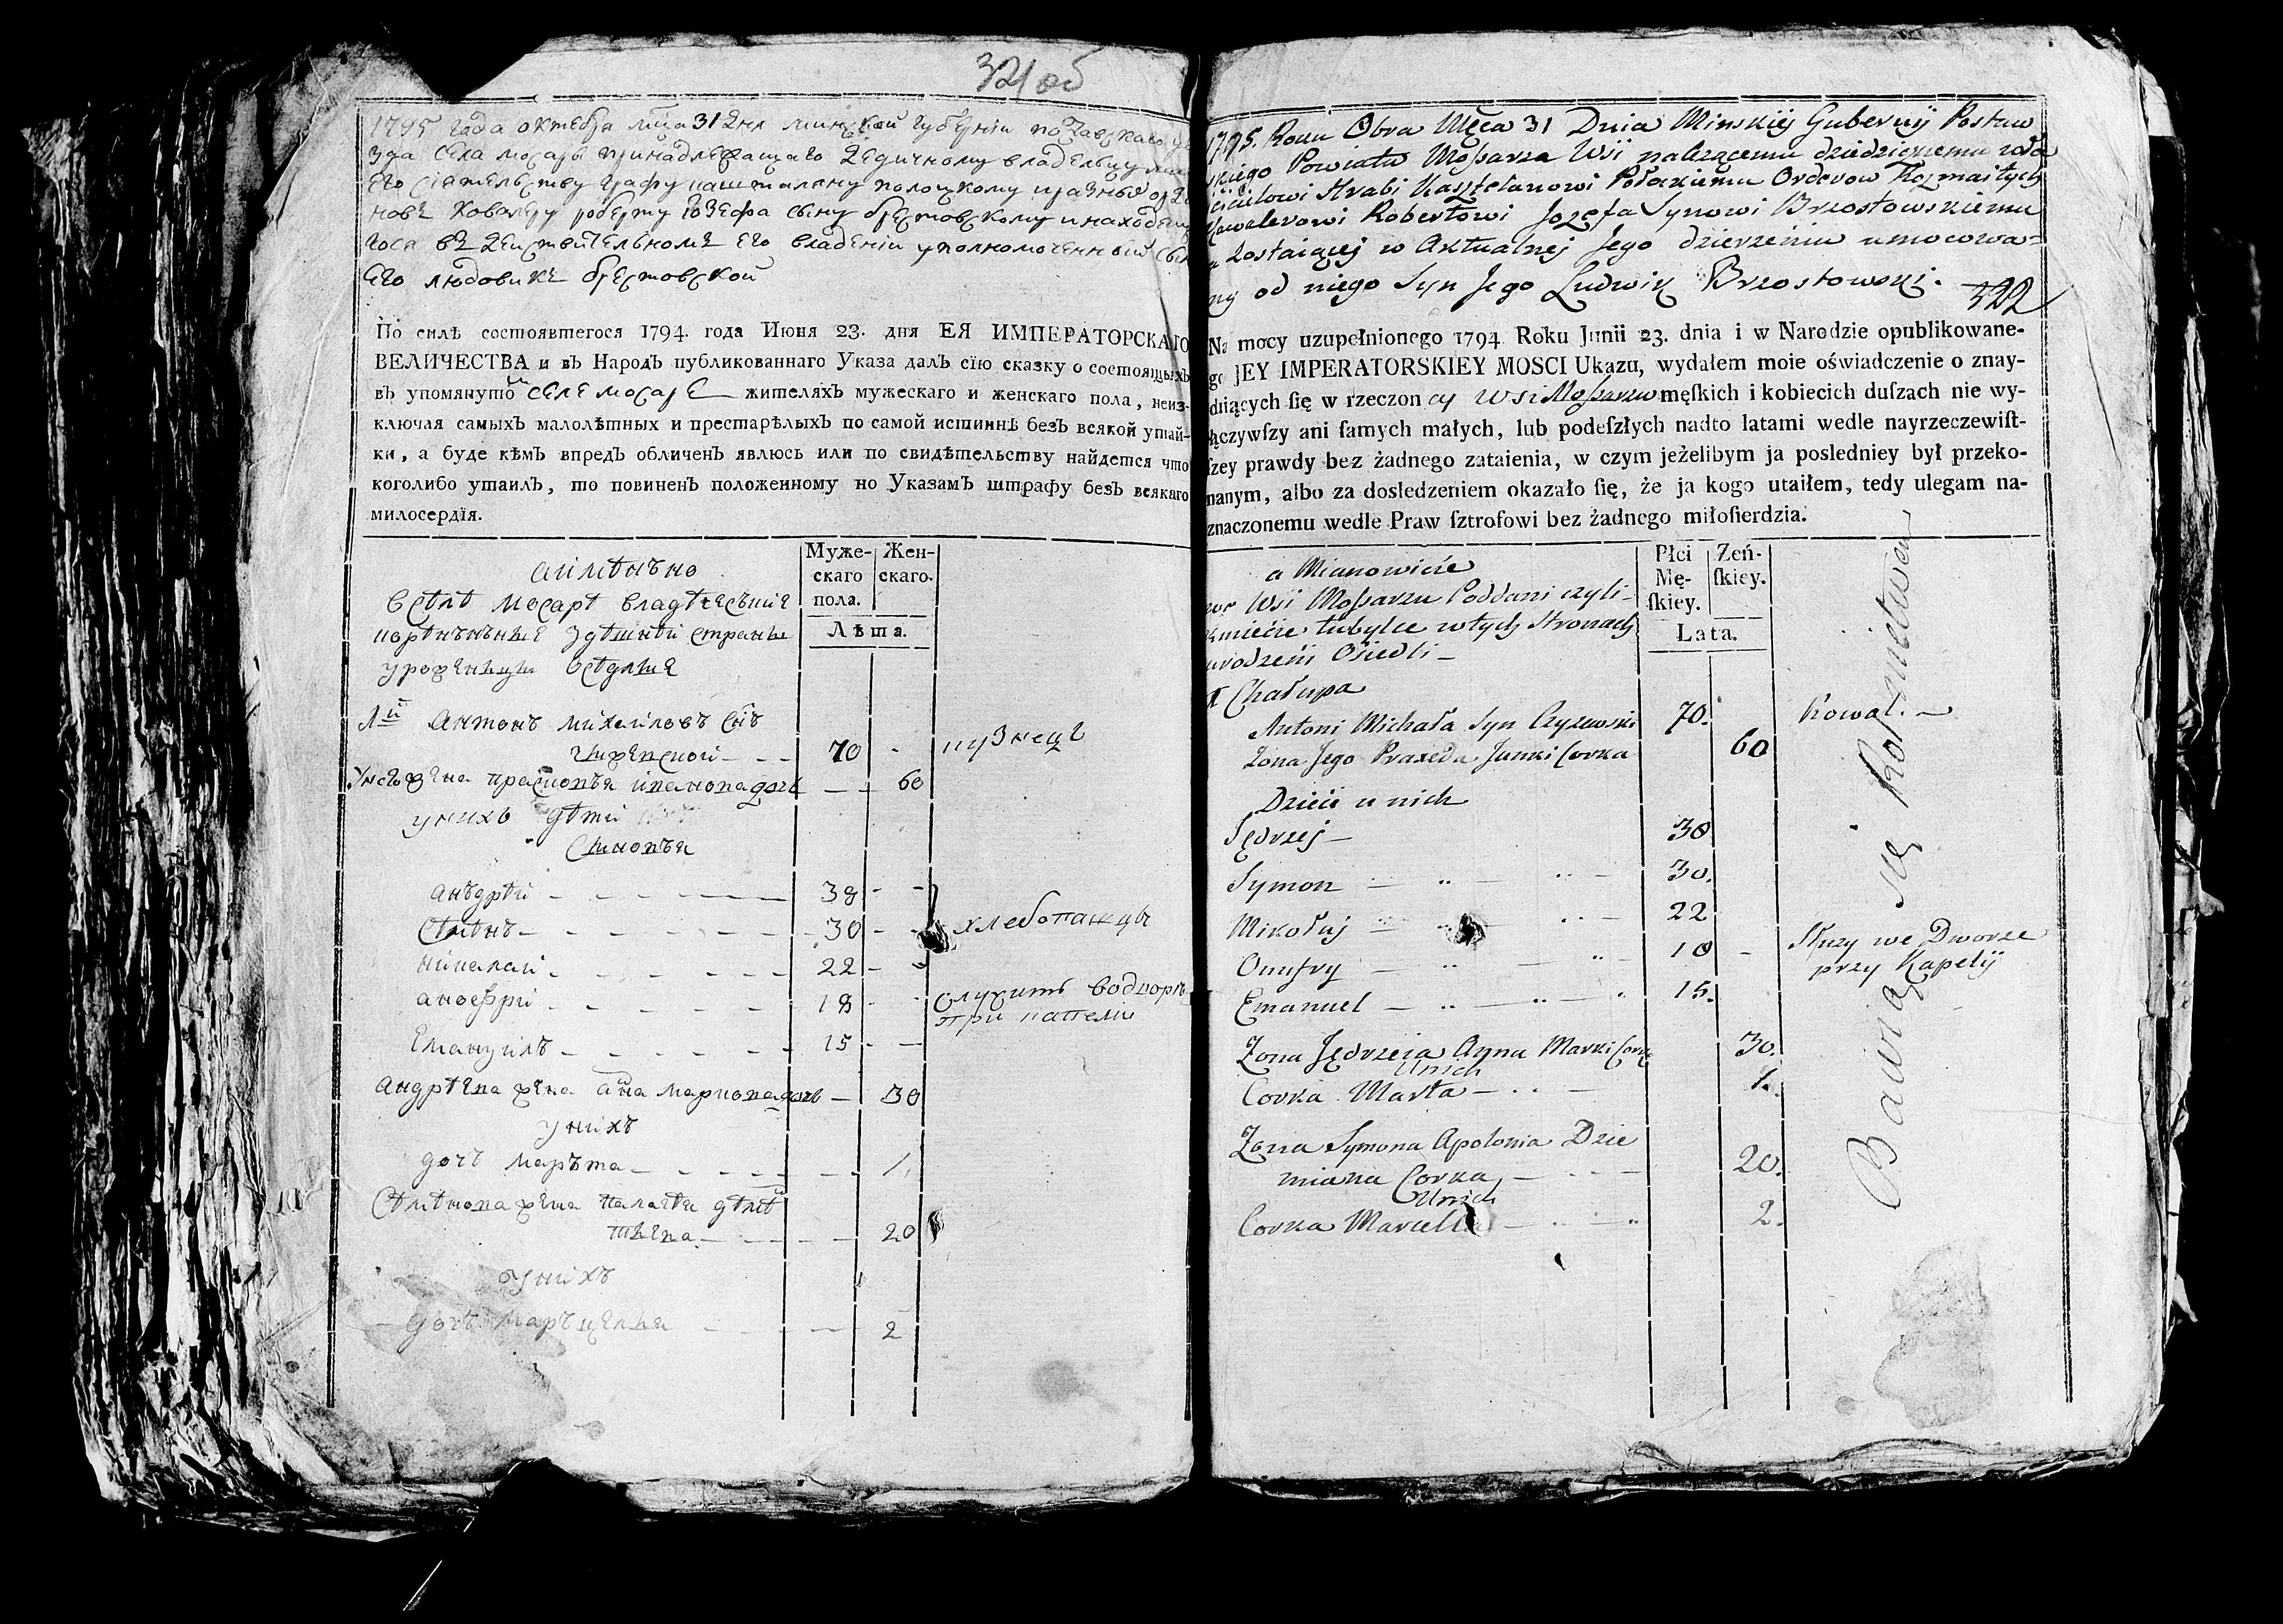 321 об
1795 года октебра мца 31 дня минской губерніи поставскаго
зда села мосаря принадлежащаго дедичному владельцу
его сіательству графу каштеляну полоцкому разныхъ орде
новъ ковалеру роберту юзефа сыну брестовскому и находе
гося въ действительномъ его владеніи уполномоченный сын
его людовикъ брестовской
По силѣ состоявшегося 1794. года Июня 23. дня ЕЯ ИМПЕРАТОРСКАГО
ВЕЛИЧЕСТВА и въ Народъ публикованнаго Указа далъ сїю сказку о состоящыхъ
въ упомянуто селе мосаре жителяхъ мужескаго и женскаго пола, неиз-
ключая самыхъ малолѣтных и престарѣлыхъ по самой истиннѣ безъ всякой утай-
ки, а буде кѣмъ впредъ обличенъ явлюсь или по свидѣтельству найдется что
коголибо утаилъ, то повиненъ положенному но Указамъ штрафу безъ всякаго
милосердїя.
Муже-скаго пола. Жен-скаго.
Лѣта.
аимѣнъно
всѣлѣ мосарѣ
здѣшнѣй страны
уроженцы осѣдлые
1й антонъ михаиловъ снъ
чижевскои 70 кузнецъ
унего жена 60
унихъ дѣти
сыновья
анъдрѣй 38
сѣмѣнъ 30 хлебопашцы
николаи 22
аноѳри 18 служитъ водворѣ
при капеліи
Емануилъ 15
андрѣева жена ана маркова дочь 30
унихъ
дочъ маръта 1
сѣмѣнова жена пелагѣя дѣмѣ
тиева 20
унихъ
дочъ маръцелия 2
1795. Roku Obra Męca 31 Dnia Minskiĳ Guberniĳ Postaw
skiego Powiatu Mossarza Wsi należącemu dziedzicznemu
Hrabi Kasztelanowi Połockiemu Orderow Rozmaitych
Kawalerowi Robertowi Jozefa Synowi Brzostowskiemu
a zostaiącej w Aktualnej Jego dzierzeniu umocowa=
ny od niego Syn Jego Ludwik Brzostowski.
322
Na mocy uzupełnionego 1794 Roku Junii 23. dnia i w Narodzie opublikowane-
go JEY IMPERATORSKIEY MOSCI Ukazu, wydałem moie oświadczenie o znay-
duiących się w rzeczoney wsi Mossarzu męſkich i kobiecich duſzach nie wy-
łączywſzy ani ſamych małych, lub podeſzłych nadto latami wedle nayrzeczewiſt-
ſzey prawdy bez żadnego zataienia, w czym jeżelibym ja posledniey był przeko-
nanym, albo za dosledzeniem okazało ſię, że ja kogo utaiłem, tedy ulegam na-
znaczonemu wedle Praw ſztrofowi bez żadnego miłoſierdzia.
Płci Mę-ſkiey. Żeń-ſkiey.
Lata.
a Mianowicie
we Wsi Mossarzu Poddani czyli
kmiecie tubylce w tych Stronach
urodzeni Osiedli
1 Chałupa
Antoni Michała Syn Czyzewski 70. Kowal.
Zona Jego Praxeda Janki Corka 60
Dzieci u nich
Jędrzej 38
Symon 30.
Mikołaj 22
Onufry 18 Słuzy we Dworze
przy Kapelĳ
Emanuel 15.
Zona Jędrzeia Anna Marki Corka 30.
Unich
Corka Marta 1.
Zona Symona Apolonia Dzie
miana Corka 20.
Unich
Corka Marcella 2.
Bawią się Rolnictwem